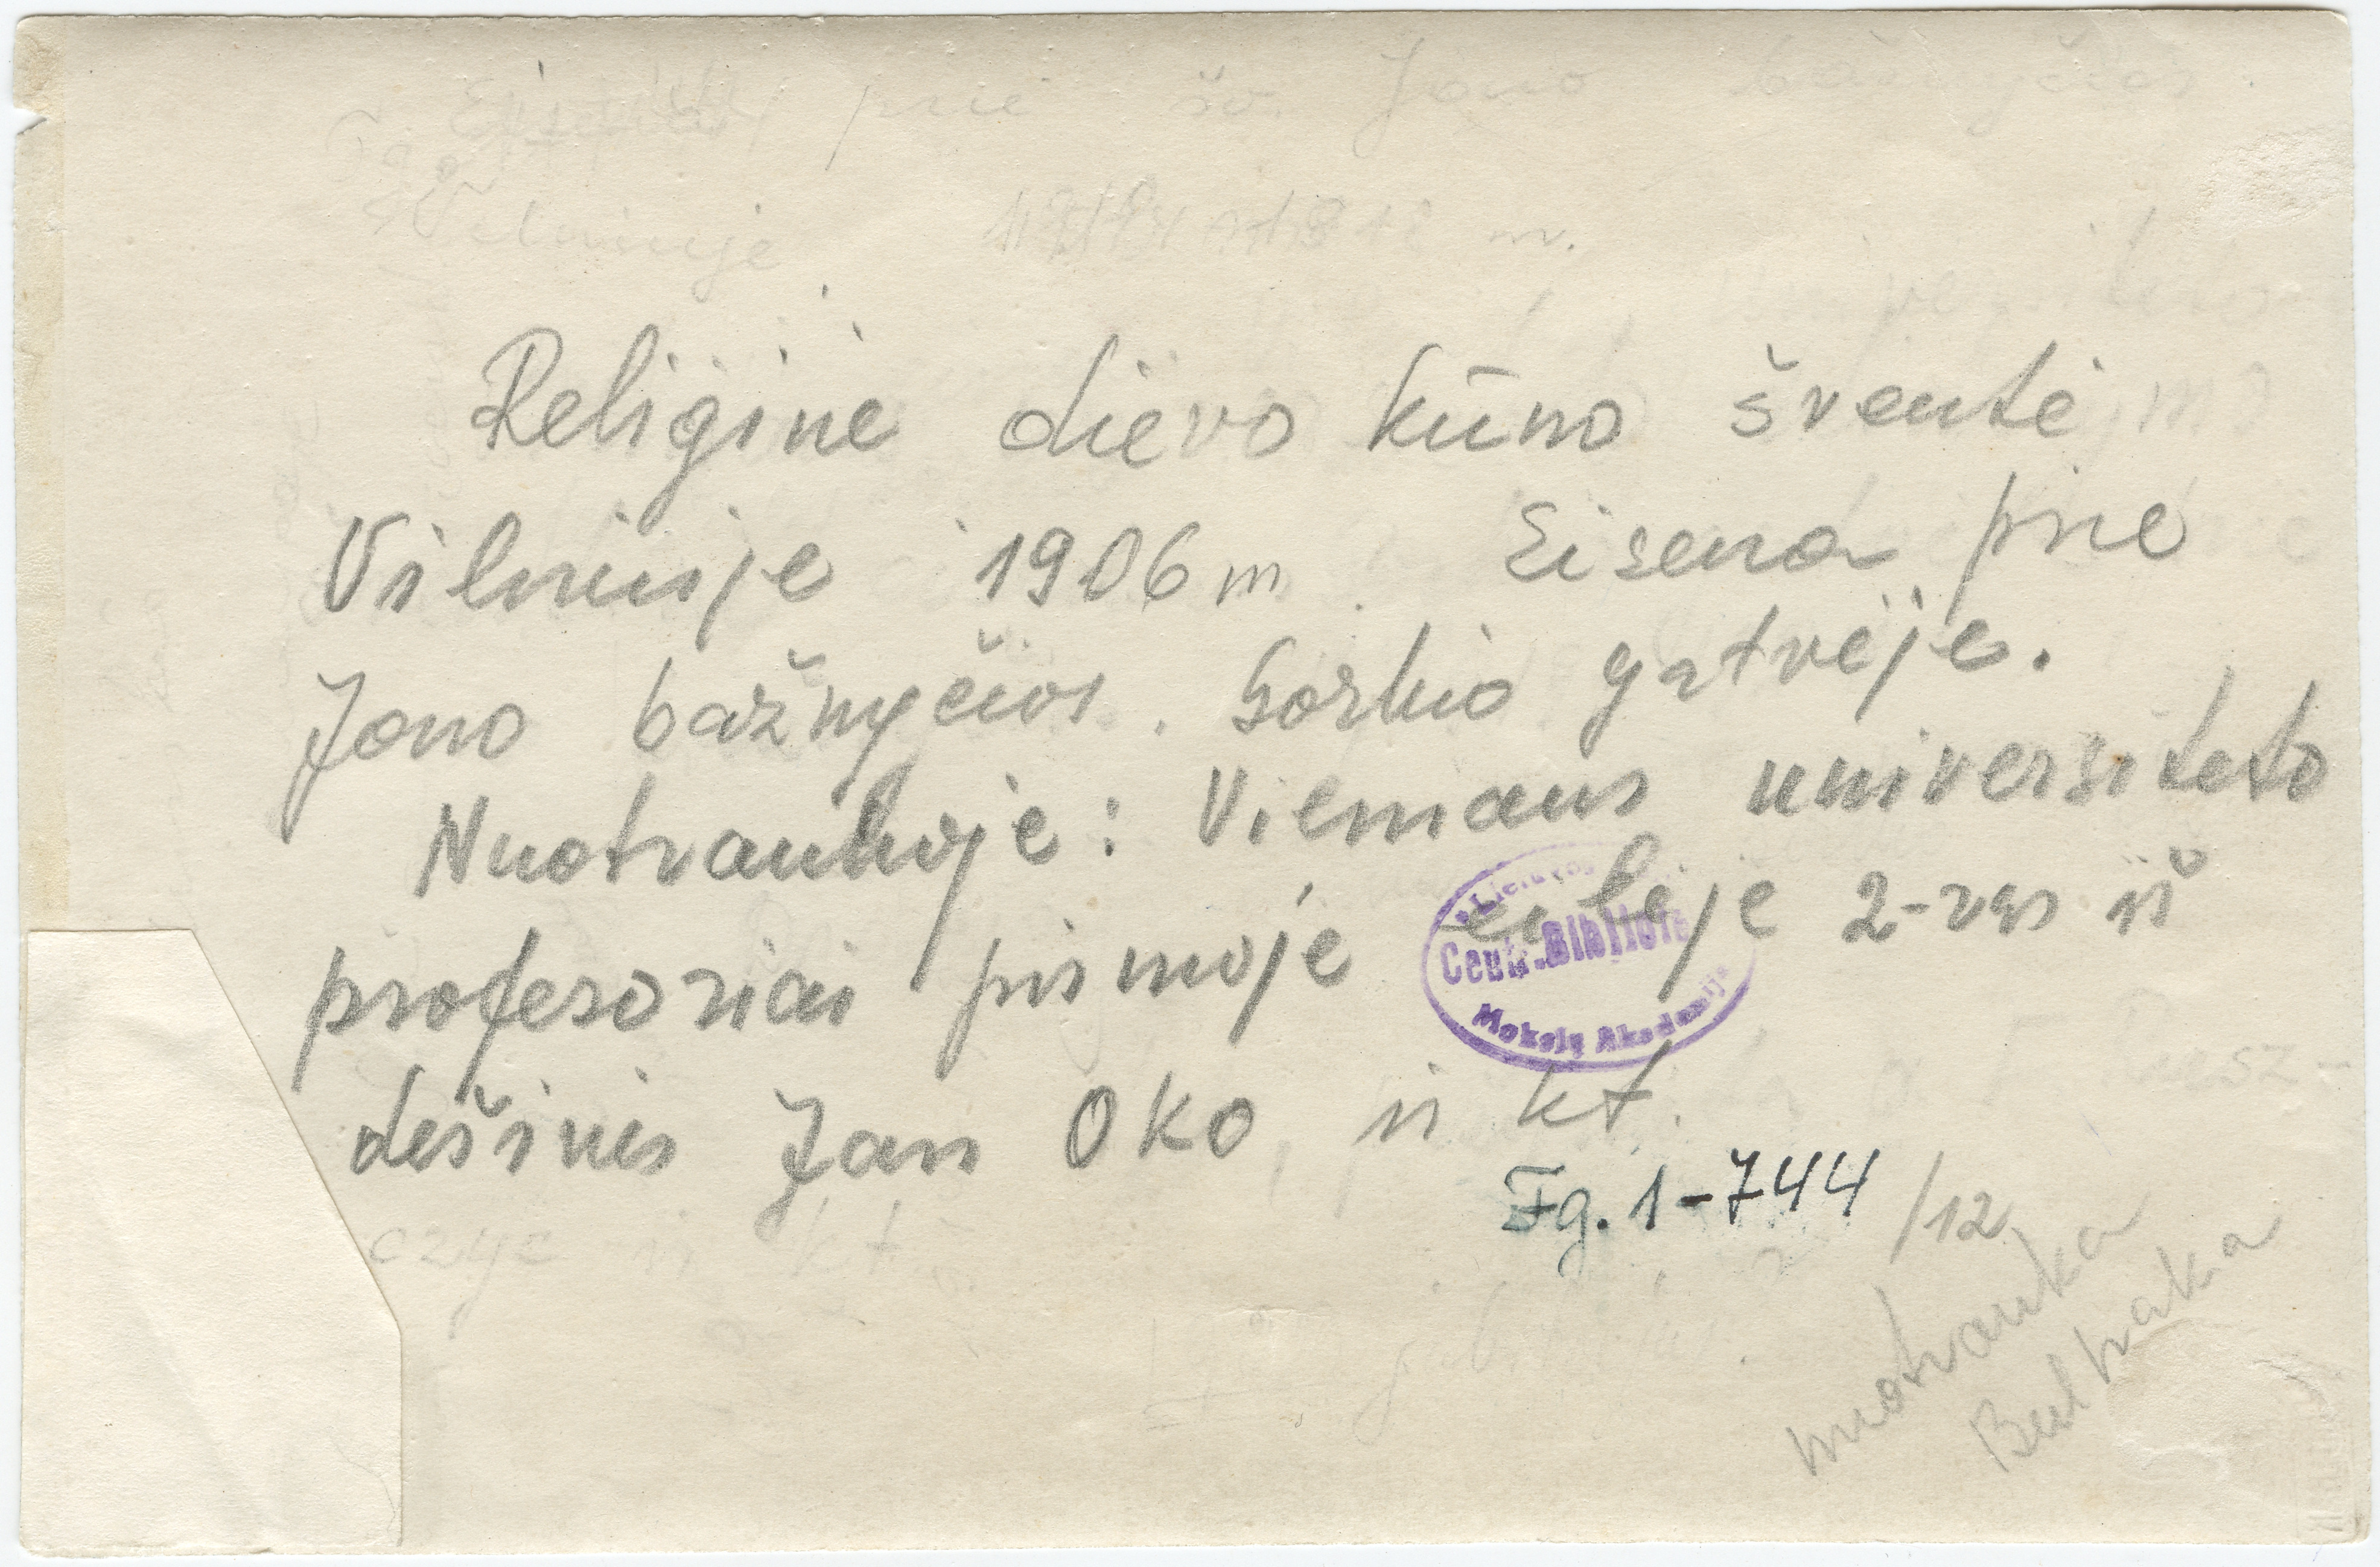 prie šv. Jono bažnyčios
Vilniuje
Religine dievo kūno šventė
Vilniuje 1906 m. Eisena prie
Jono bažnyčios. Gorkio gatvėje.
Nuotraukoje: Vilniaus universiteto
profesoriai pirmoje eilėje 2-ras iš
dešinės Jan Oko, ir kt.
Lietuvos
Centr. Bibliote
Mokslų Akademija
Fg. 1-744/12
nuotrauka
Bulhaka
ir kt